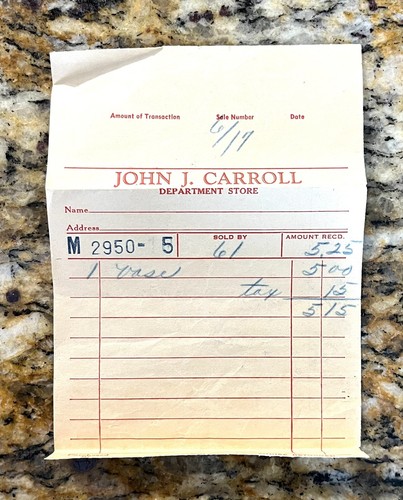 Amount of Transaction Sale Number Date
6/17
JOHN J. CARROLL
DEPARTMENT STORE
Name
Address
M 2950- 5 SOLD BY 61 AMOUNT RECD. 5.25
1 vase 5 00
tax 15
5 15